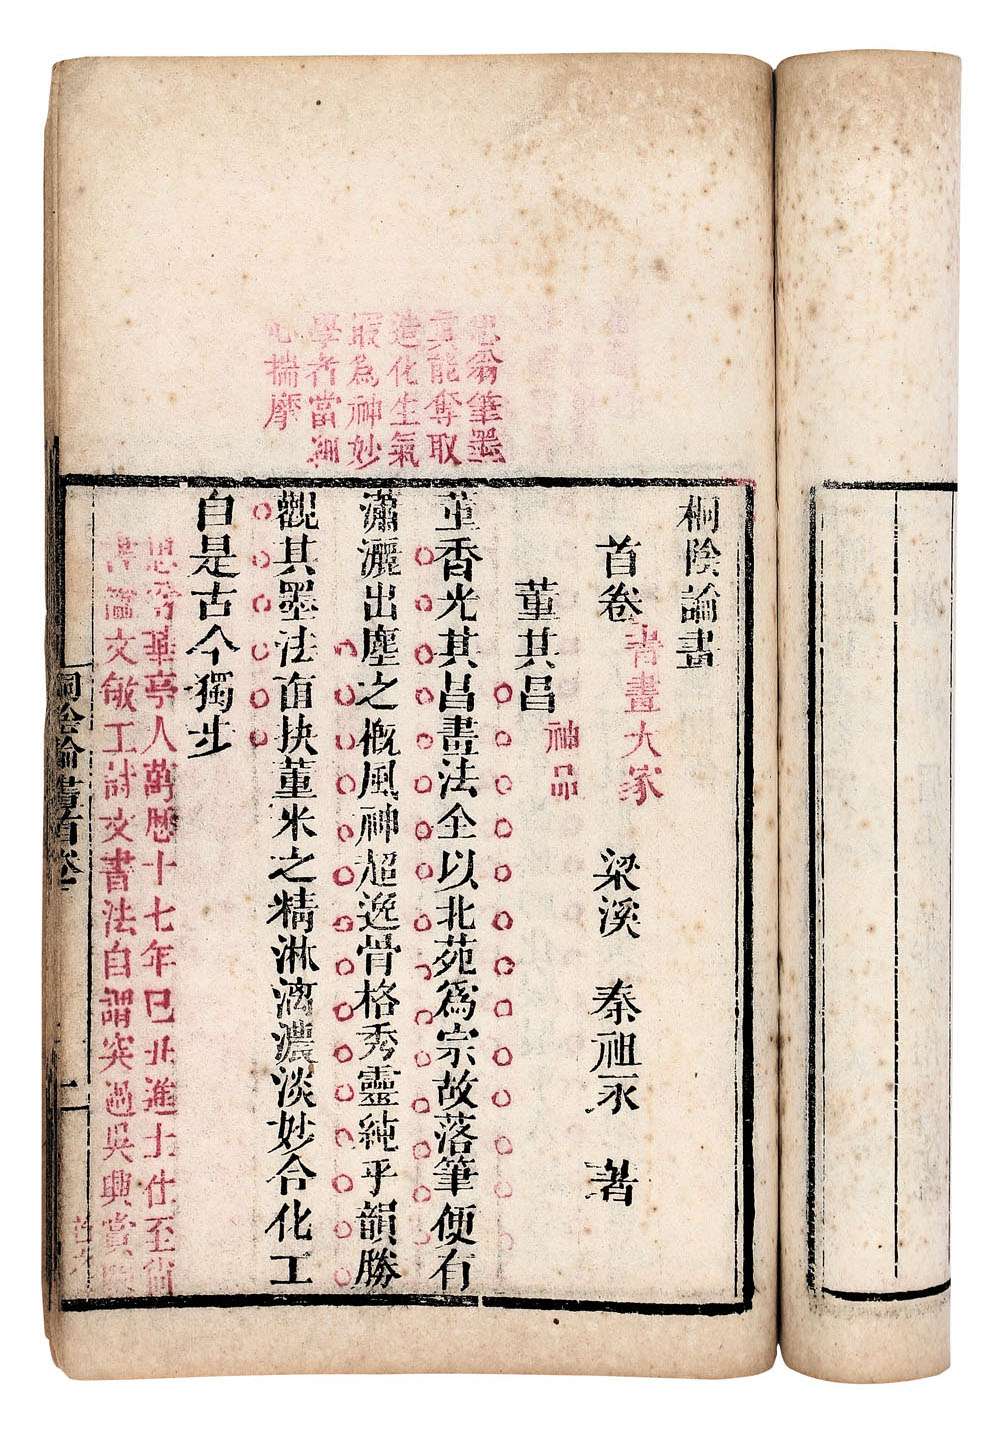 思翁筆墨
真能奪取
造化生氣
最爲神妙
學者當細
心揣摩
桐陰論畫
首卷 書畫大家 梁溪 秦祖永 著
董其昌 神品
董香光其昌畫法全以北苑爲宗故落筆便有
瀟灑出塵之概風神超逸骨格秀靈純乎韻勝
觀其墨法直抉董米之精淋漓濃淡妙合化工
自是古今獨步
思翁華亭人萬歷十七年己丑進士仕至尙
書諡文敏工詩文書法自謂突過吳興賞鑒
桐陰論畫首卷
一